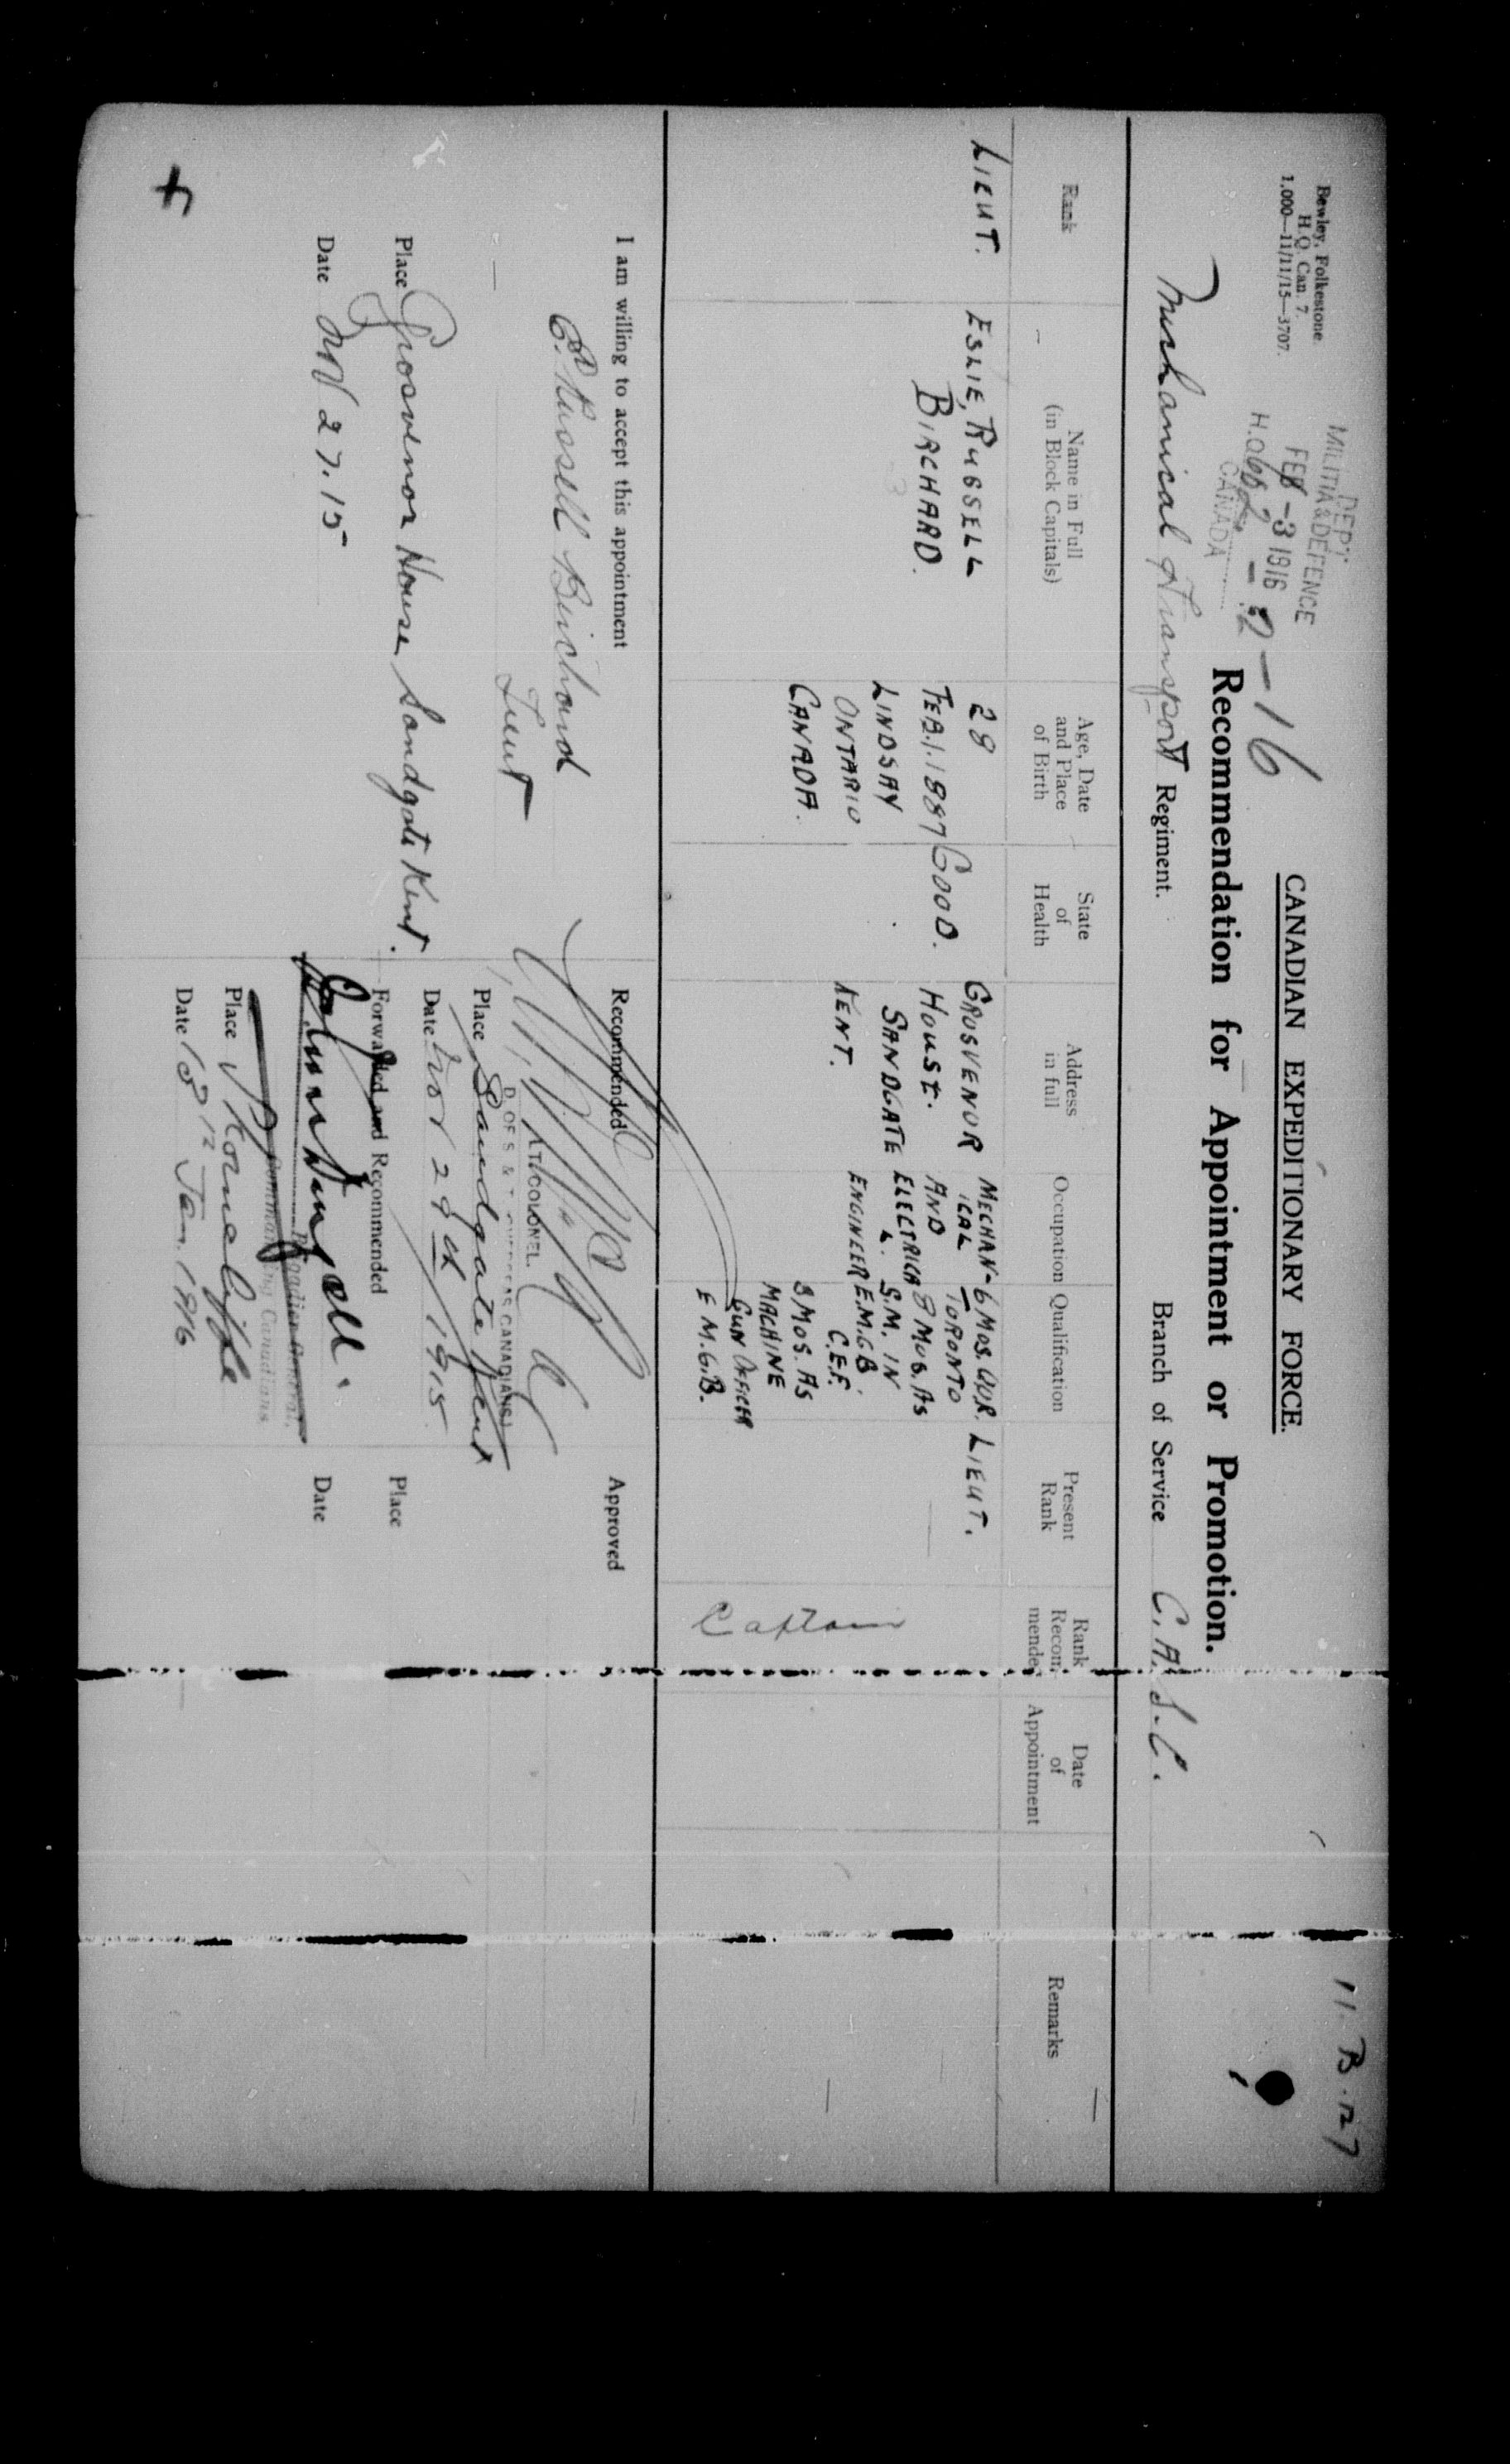 Bewley, Folkestone.
H.Q. Can. 7.
1,000—11/11/15—3707.
DEPT.
MILITIA & DEFENCE
FEB -3 1916
H.Q. 602-2-16
CANADA
11.B.127
CANADIAN EXPEDITIONARY FORCE.
Recommendation for Appointment or Promotion.
Mechanical Transport Regiment. Branch of Service C.A.S.C.
Rank
Name in Full
(in Block Capitals)
Age, Date
and Place
of Birth
State
of
Health
Address
in full
Occupation
Qualification
Present
Rank
Rank
Recom-
mended
Date
of
Appointment
Remarks
LIEUT.
ESLIE, RUSSELL
BIRCHARD.
28
FEB.1.1887
LINDSAY
ONTARIO
CANADA.
GOOD.
GROSVENOR
HOUSE.
SANDGATE
KENT.
MECHAN-
ICAL
AND
ELECTRICA
L.
ENGINEER
6 MOS. QOR.
TORONTO
8 MOS. AS
S.M. IN
E.M.G.B.
C.E.F.
3 MOS. AS
MACHINE
GUN OFFICER
E.M.G.B.
LIEUT.
Captain
I am willing to accept this appointment
E. Russell Birchard
Lieut
Place Grosvenor House Sandgate Kent.
Date Nov 27.15
Recommended
LT. COLONEL.
D. OF S. & T. OVERSEAS CANADIANS
Place Sandgate Kent
Date Nov 28th/1915
Forwarded and Recommended
Brigadier General,
Commanding Canadians
Place Shorncliffe
Date 13 Jan. 1916
Approved
Place
Date